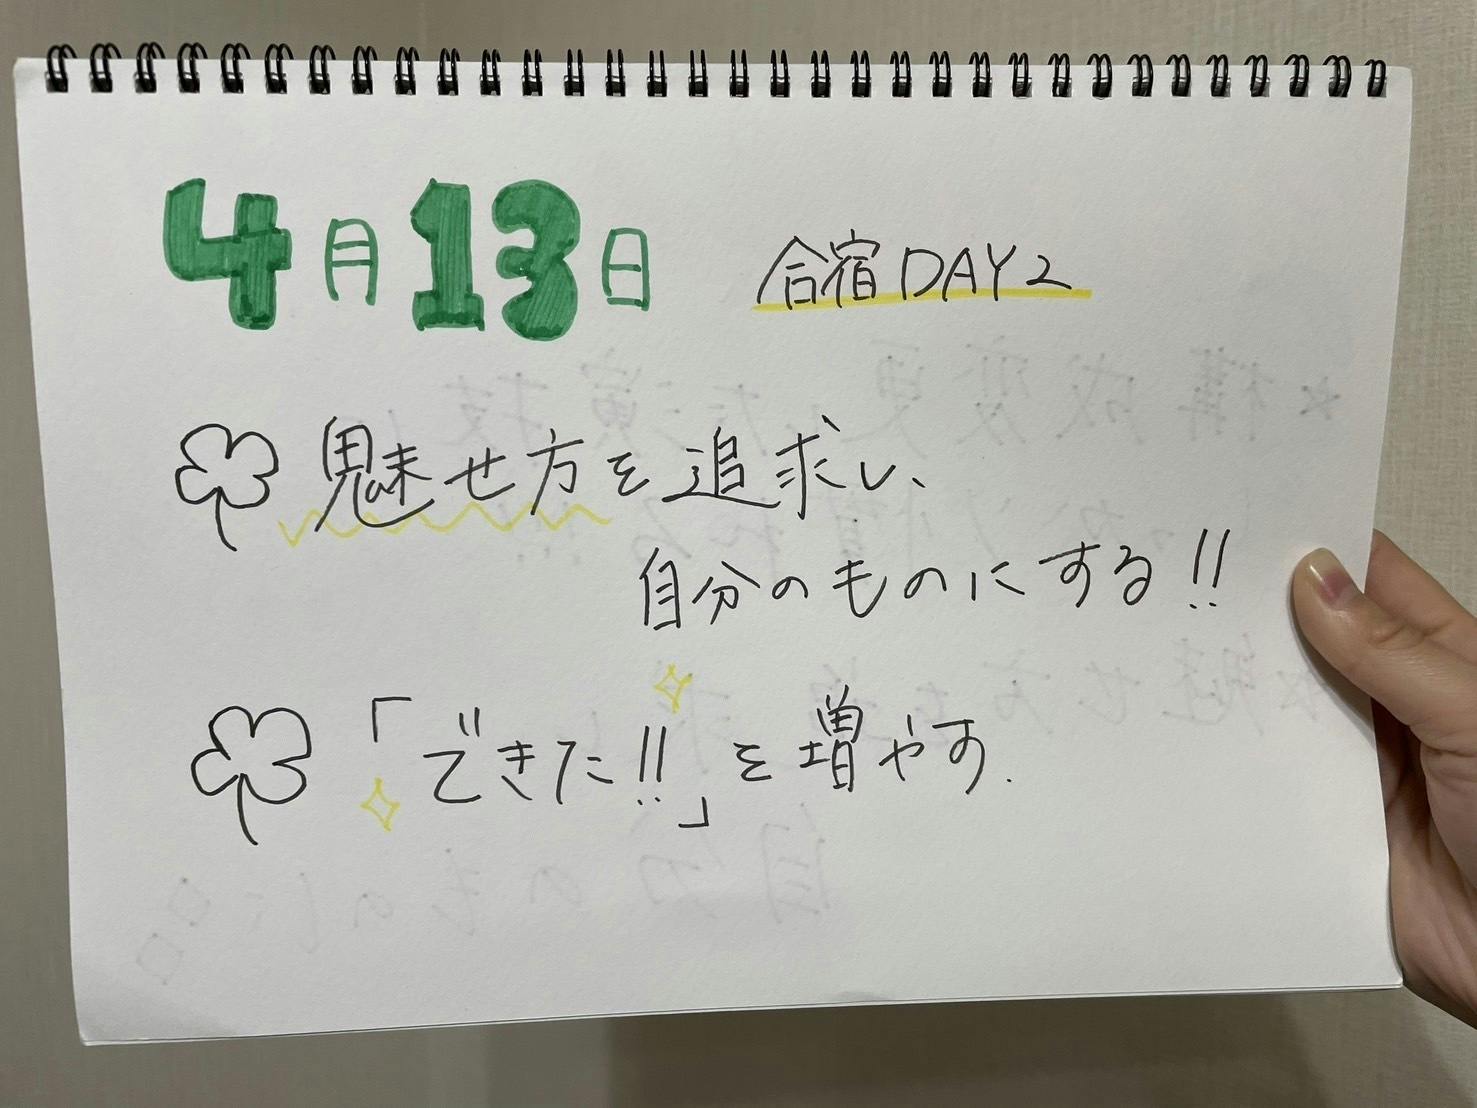 4月13日 合宿DAY2
魅せ方を追求し、
自分のものにする!!
「できた!!」を増やす.